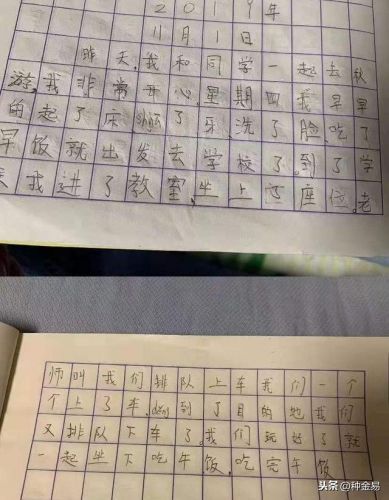 2019年
11月1日
昨天,我和同学一起去秋
游,我非常开心,星期四我早早
的起了床,shua了牙,洗了脸,吃了
早饭就出发去学校了。到了学
我进了教室,坐上了座位。老
师叫我们排队上车我们一个
个上了车,deng到了目的地我们
又排队下车了。我们玩好了就
一起坐下吃午饭,吃完午饭
头条 @种金易